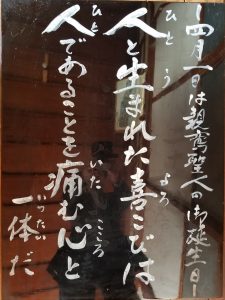 ―四月一日は親鸞聖人の御誕生日―
人と生まれた喜こびは
ひと う よろ
人であることを痛む心と
ひと いた こころ
一体だ
いったい